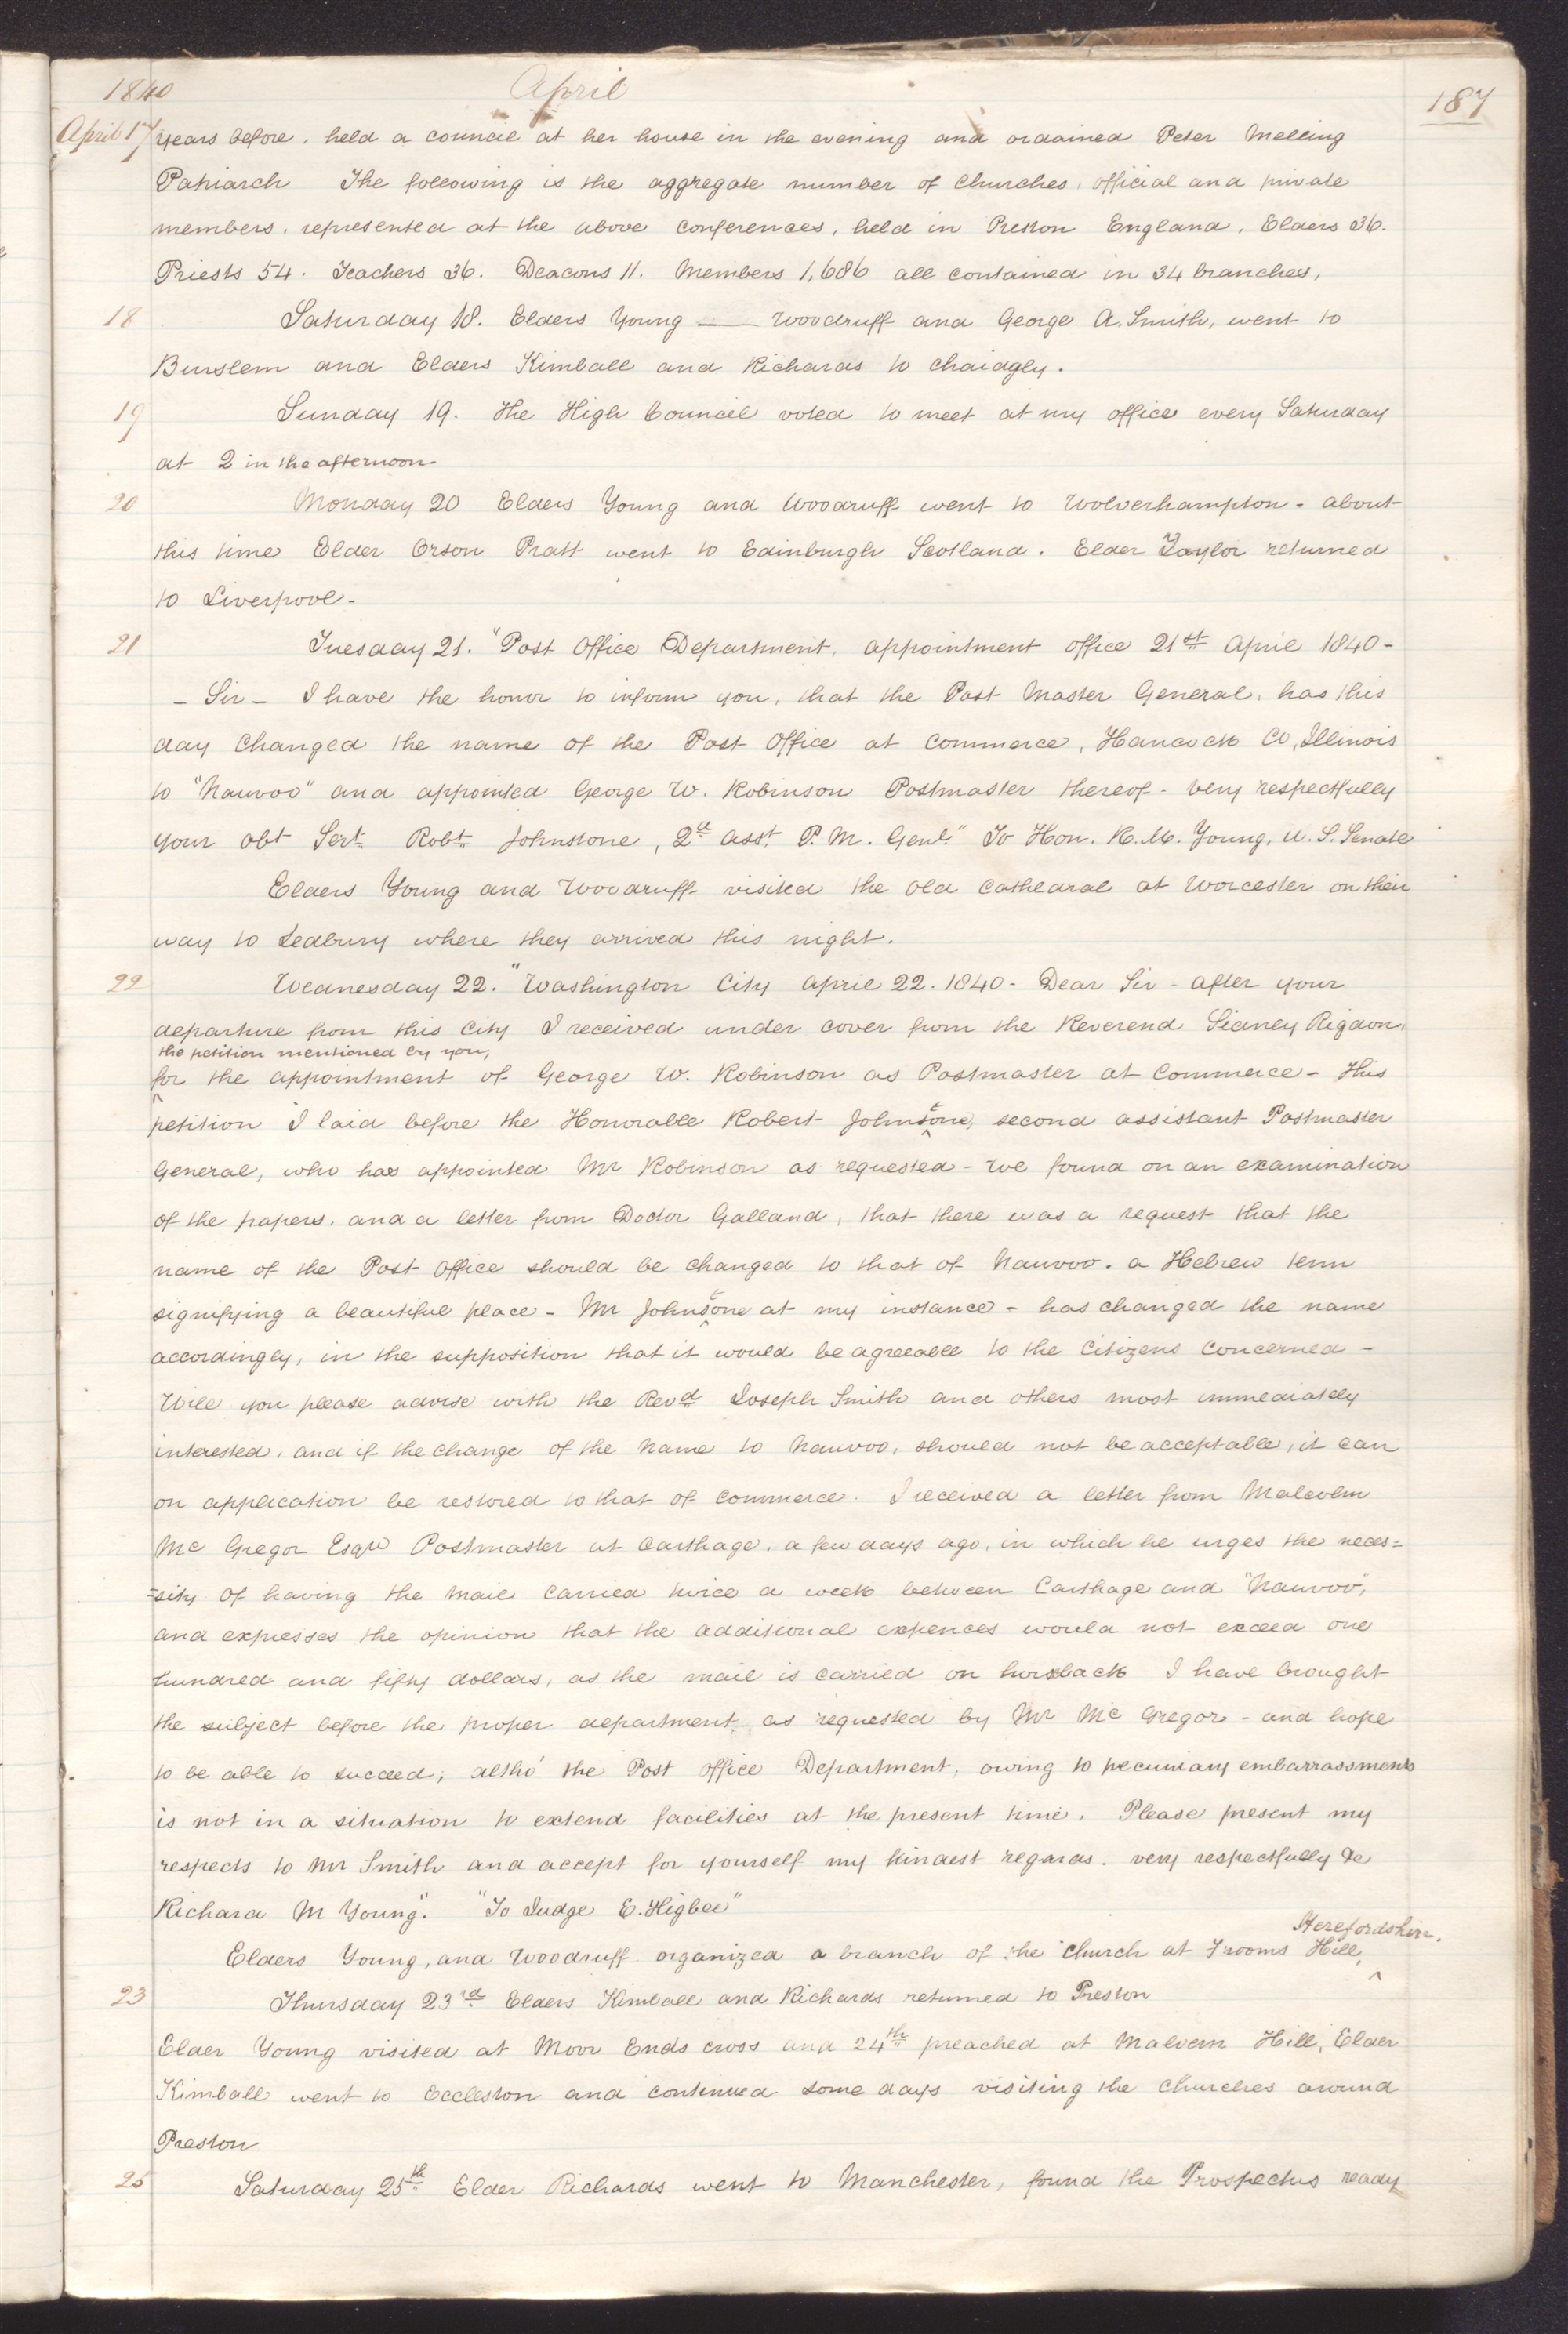 1840 April 187
April 17 years before. held a council at her house in the evening and ordained Peter Melling
Patriarch The following is the aggregate number of Churches, official and private
members, represented at the above conferences, held in Preston England, Elders 36.
Priests 54. Teachers 36. Deacons 11. Members 1,686 all contained in 34 branches,
18 Saturday 18. Elders Young —— Woodruff and George A. Smith, went to
Burslem and Elders Kimball and Richards to Chaidgly.
19 Sunday 19. The High Council voted to meet at my office every Saturday
at 2 in the afternoon-
20 Monday 20 Elders Young and Woodruff went to Wolverhampton - about
this time Elder Orson Pratt went to Edinburgh Scotland. Elder Taylor returned
to Liverpool-
21 Tuesday 21. "Post Office Department, appointment office 21st April 1840-
- Sir - I have the honor to inform you, that the Post Master General, has this
day Changed the name of the Post Office at Commerce, Hancock Co, Illinois
to "Nauvoo" and appointed George W. Robinson Postmaster thereof - very respectfully
your obt Sert Robt Johnstone, 2d asst P. M. Genl." To Hon. R. M. Young, U. S. Senate
Elders Young and Woodruff visited the old Cathedral at Worcester on their
way to Ledbury where they arrived this night.
22 Wednesday 22. "Washington City April 22. 1840- Dear Sir - after your
departure from this City I received under cover from the Reverend Sidney Rigdon,
the petition mentioned by you,
for the appointment of George W. Robinson as Postmaster at Commerce - This
petition I laid before the Honorable Robert Johnstone, second assistant Postmaster
General, who has appointed Mr Robinson as requested - We found on an examination
of the papers. and a letter from Doctor Galland, that there was a request that the
name of the Post Office should be changed to that of Nauvoo. a Hebrew term
signifying a beautiful place - Mr Johnstone at my instance - has changed the name
accordingly, in the supposition that it would be agreeable to the Citizens Concerned -
Will you please advise with the Revd Joseph Smith and others most immediately
interested, and if the change of the Name to Nauvoo, should not be acceptable, it can
on application be restored to that of Commerce. I received a letter from Malcolm
Mc Gregor Esqre Postmaster at Carthage, a few days ago, in which he urges the neces=
=sity of having the mail carried twice a week between Carthage and "Nauvoo",
and expresses the opinion that the additional expences would not exceed one
hundred and fifty dollars, as the mail is carried on horseback I have brought
the subject before the proper department, as requested by Mr Mc Gregor - and hope
to be able to succeed; altho' the Post office Department, owing to pecuniary embarrassments
is not in a situation to extend facilities at the present time. Please present my
respects to Mr Smith and accept for yourself my kindest regards. very respectfully &c
Richard M Young". "To Judge E. Higbee"
Herefordshire.
Elders Young, and Woodruff organized a branch of the Church at Frooms Hill,
23 Thursday 23rd Elders Kimball and Richards returned to Preston
Elder Young visited at Moor Ends cross and 24th preached at Malvern Hill, Elder
Kimball went to Eccleston and continued some days visiting the Churches around
Preston
25 Saturday 25th Elder Richards went to Manchester, found the Prospectus ready